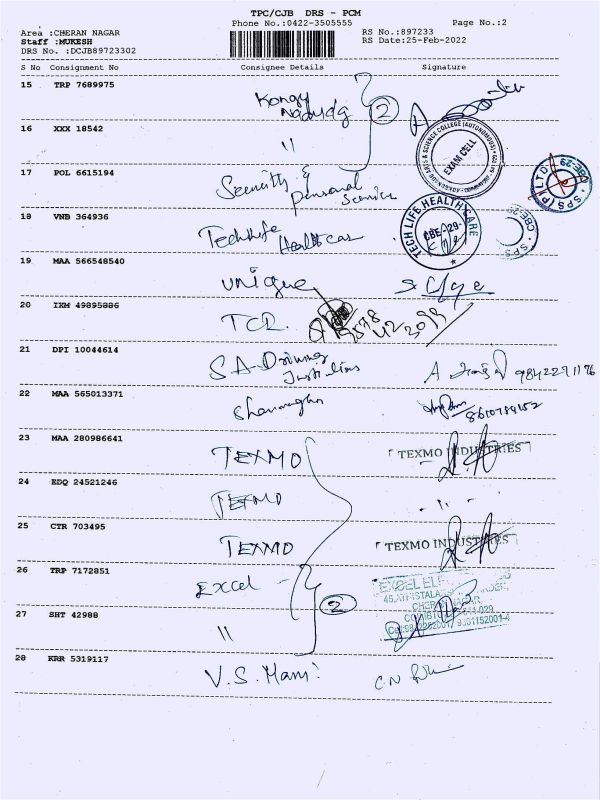 TPC/CJB DRS - PCM
Phone No.:0422-3505555
Page No.:2
Area :CHERAN NAGAR
Staff :MUKESH
DRS No. :DCJB89723302
RS No.:897233
RS Date:25-Feb-2022
S No Consignment No Consignee Details Signature
15 TRP 7689975 Kongu
2
16 XXX 18542 "
EXAM CELL
17 POL 6615194 Security &
personal
service
SPS (P) LTD CBE-29
18 VNB 364936 Techlife
Healthcar
TECH LIFE HEALTH CARE
CBE-29
SPS CBE-29
19 MAA 566548540 unique
20 IXM 49895886 TCR.
21 DPI 10044614 SA-Driving
A 9842291176
22 MAA 565013371
23 MAA 280986641 TEXMO TEXMO INDUSTRIES
24 EDQ 24521246 TEXMO "
25 CTR 703495 TEXMO TEXMO INDUSTRIES
26 TRP 7172851 Excel
2
EXCEL
27 SHT 42988 "
28 KRR 5319117 V.S. Mani C.N